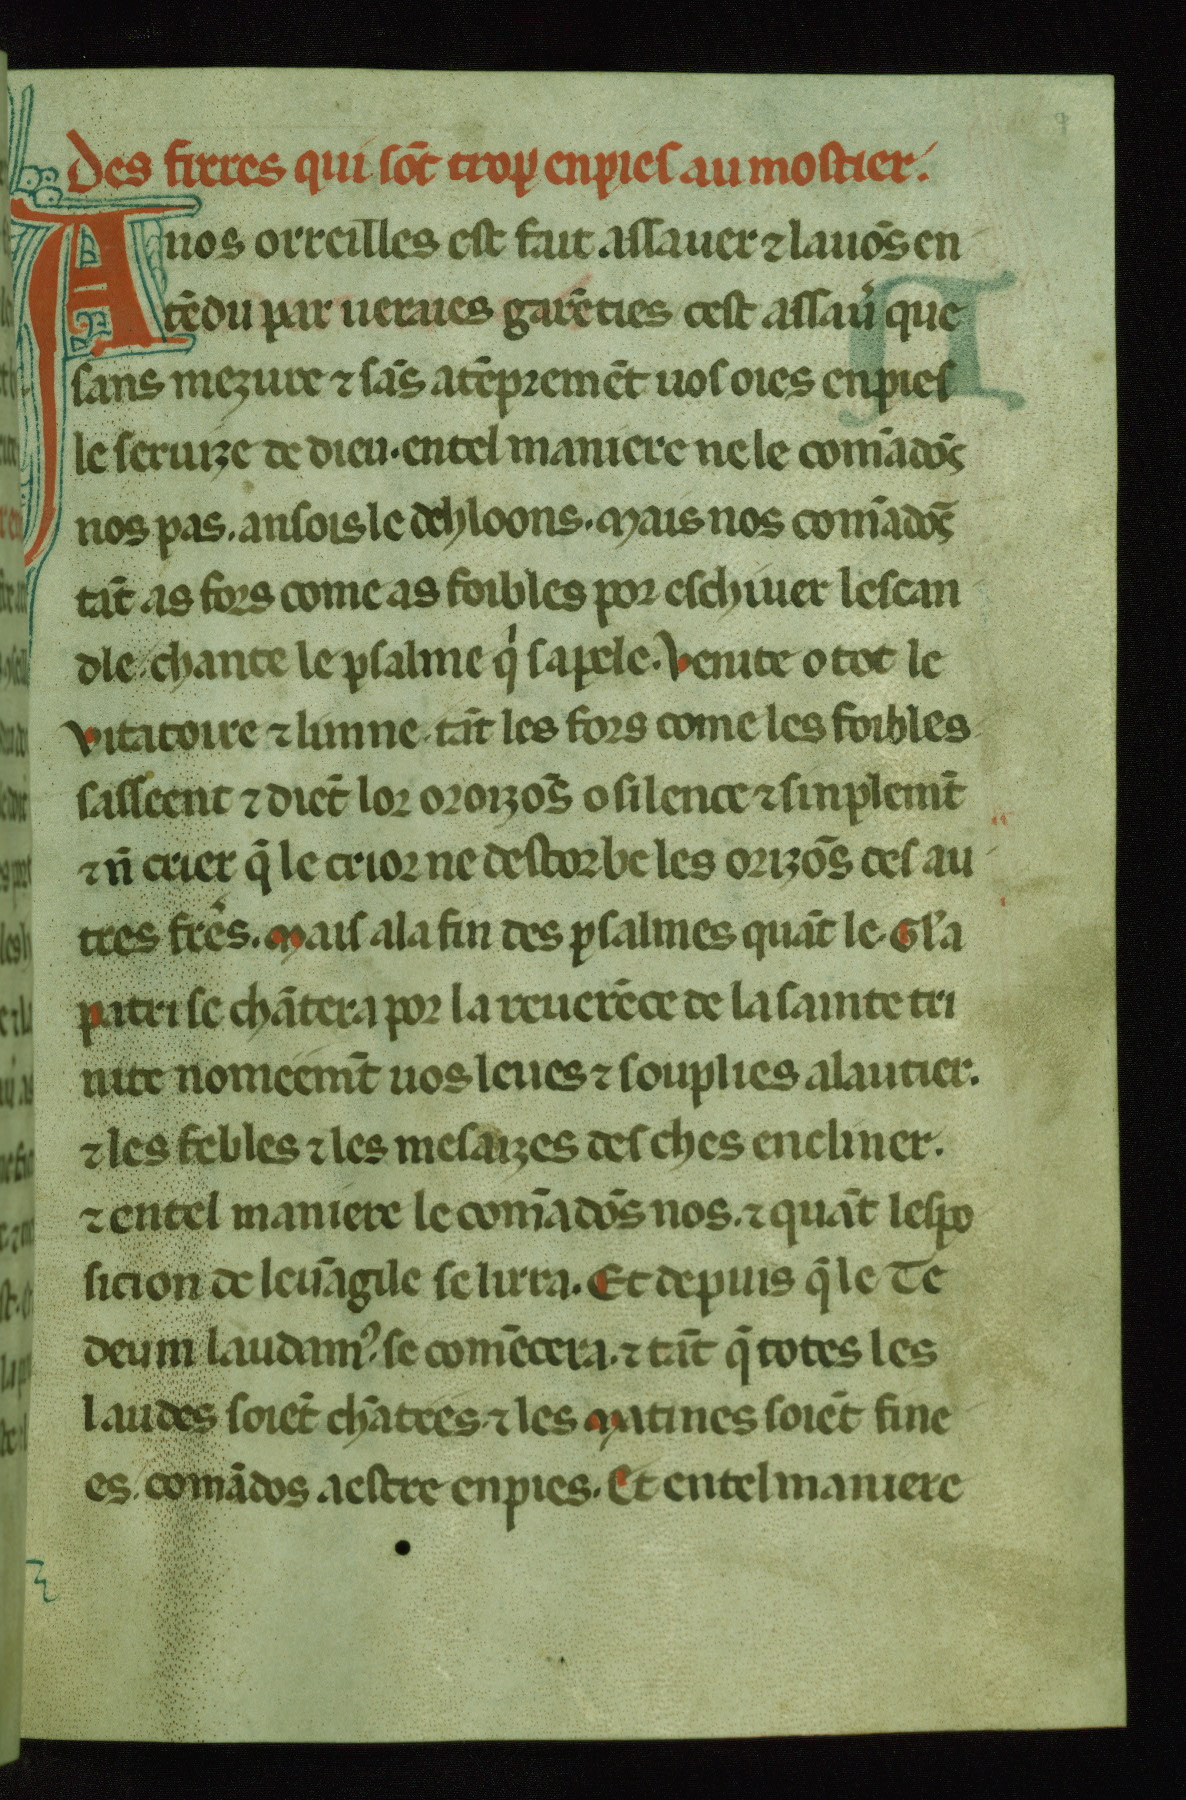 Des freres qui sōt trop enpies au mostier.
A uos orreilles est fait assauer ⁊ lauōs en
tēdu par uerues garēties cest assauͥ que
sans mezure ⁊ sās atēpremēt uos oies enpies
le seruize de dieu. entel maniere ne le comādōs
nos pas. ansois le dehloons. Mais nos comādōs
tāt as fors come as foibles por eschiuer lescan
dle. chante le psalme qͥ sapele. Venite o tot le
vitatoire ⁊ linne. tāt les fors come les foibles
sasseent ⁊ diēt lor oroizōs o silence ⁊ sinplemt̄
⁊ n̄ crier q̄ le crior ne destorbe les orizōs des au
tres frēs. Mais ala fin des psalmes quāt le. Gl'a
patri se chātera por la reuerēce de la sainte tri
nite nomeemt̄ uos leues ⁊ souplies alautier.
⁊ les febles ⁊ les mesaizes des ches encliner.
⁊ entel maniere le comādōs nos. ⁊ quāt lespo
sicion de leuāgile se lirra. Et depuis q̄ le Te
deum laudamꝰ. se comēcera. ⁊ tāt q̄ totes les
laudes soiēt chātees. ⁊ les Matines soiēt fine
es. comādos aestre enpies. Et entel maniere